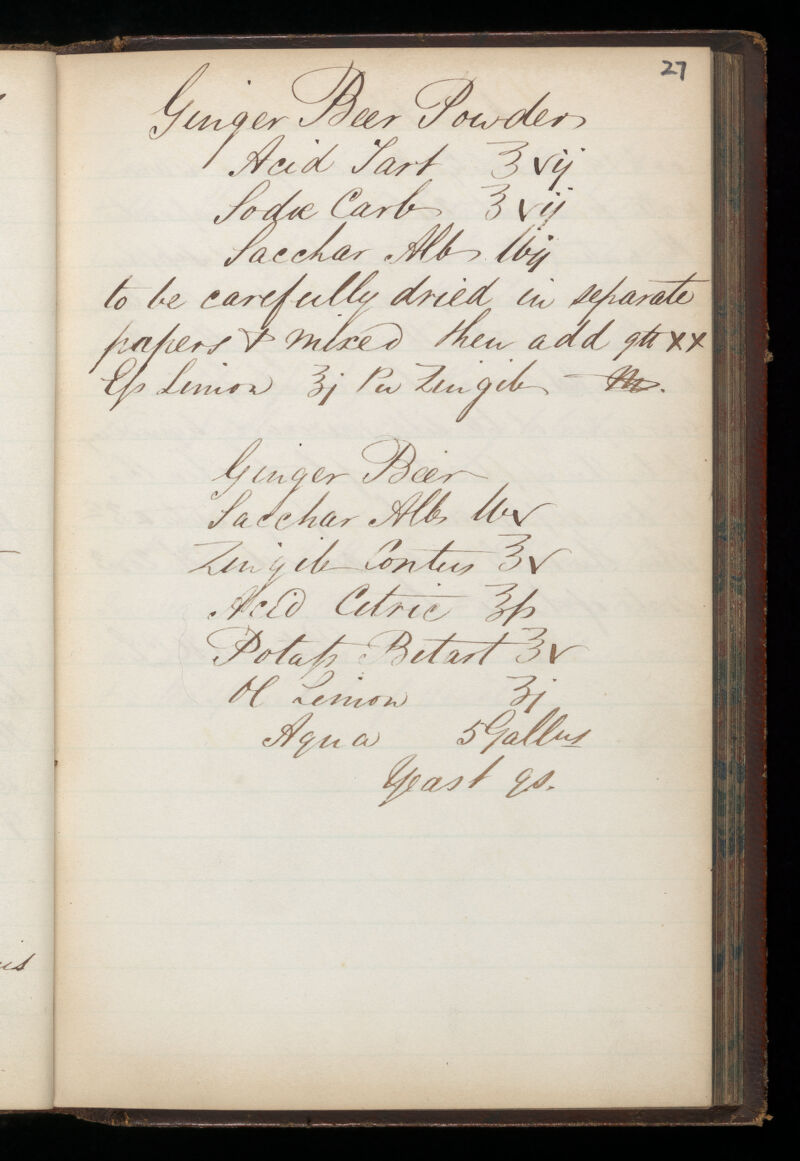 27
Ginger Beer Powders
Acid Tart ℥vij
Sodæ Carb ℥vij
Sacchar Alb lbij
to be carefully dried in separate
papers & mixed then add gtt xx
Ess Limon ʒj Pu Zingib M.
Ginger Beer
Sacchar Alb lbv
Zingib Contus ℥v
Acid Citric ℥ſs
Potaſs Bitart ℥v
Ol Limon ʒj
Aqua 5 Gallns
Yeast qs.
us